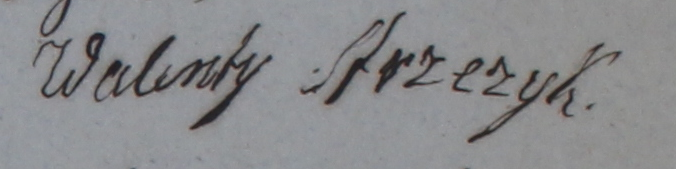 Walenty Strzezyk.